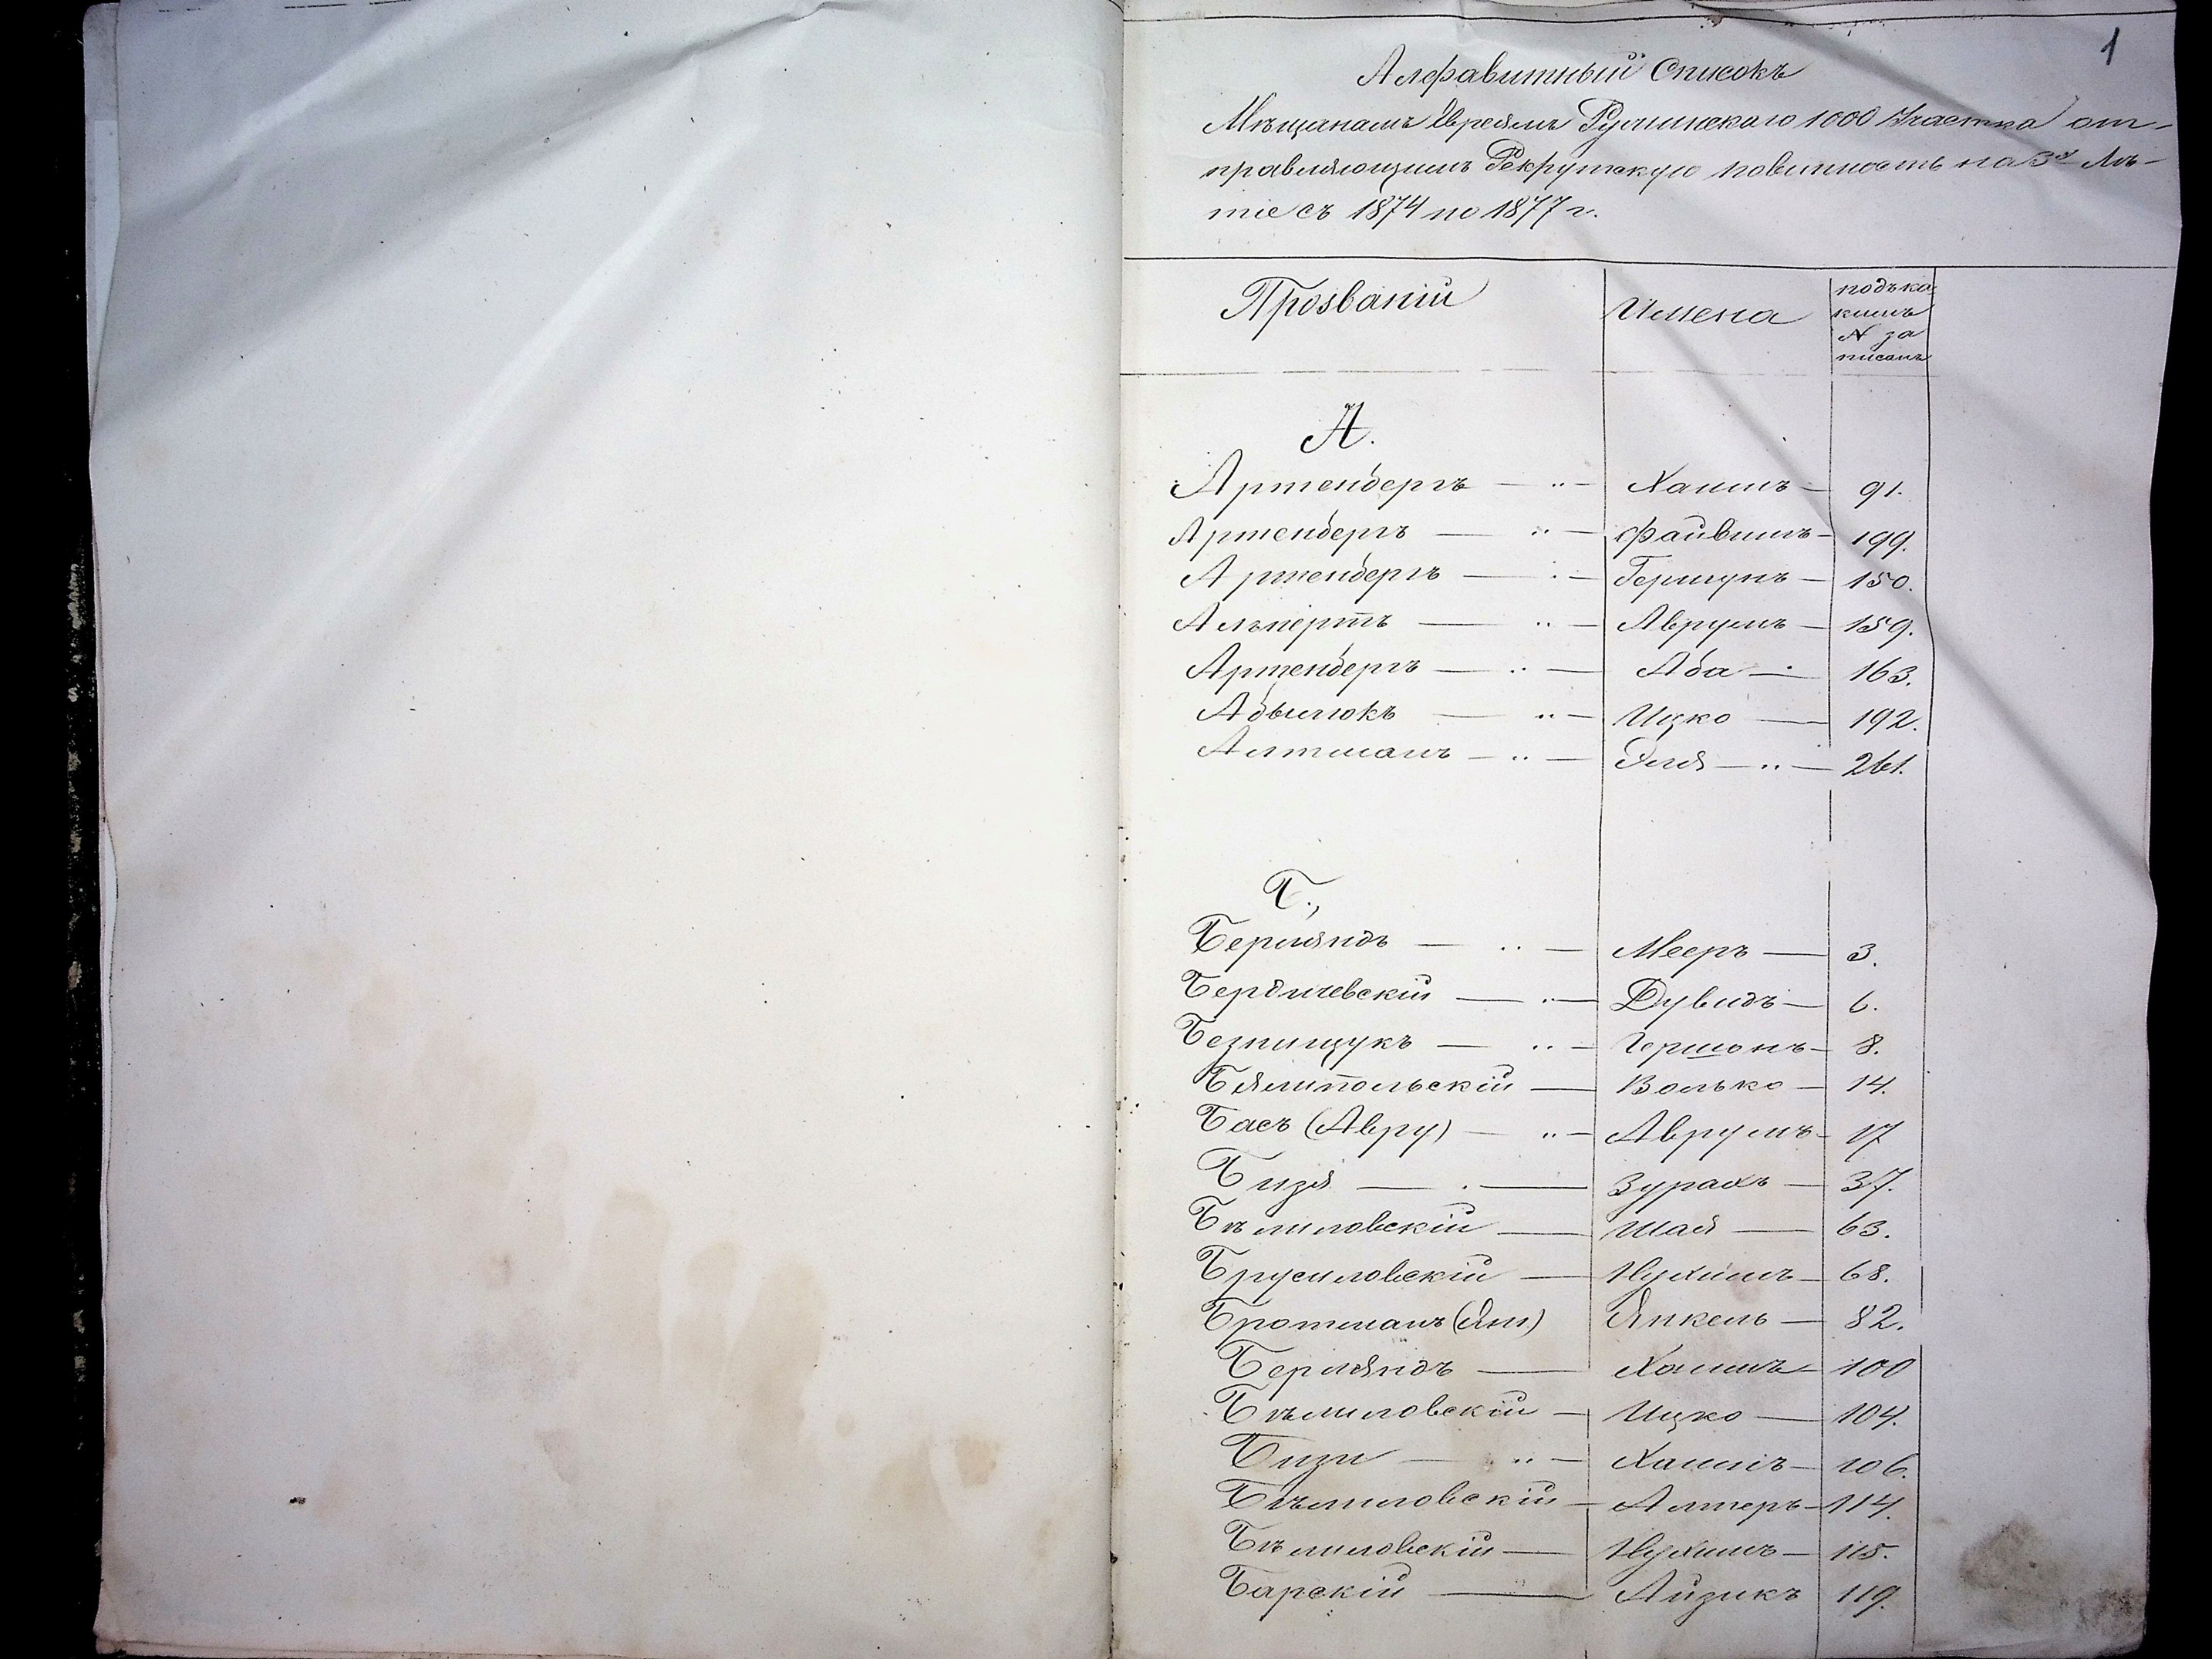 1
Алфавитный Списокъ
Мѣщанамъ Евреямъ Ружинскаго 1000 Участка от-
правляющимъ Рекрутскую повинность на 3х Лѣ-
тіе съ 1874 по 1877 г.
Прозваніи Имена подъ ка
кимъ
N за
писанъ
А.
Артенбергъ — Хаимъ — 91.
Артенбергъ — Файвишъ — 199.
Артенбергъ — Гершунъ — 150.
Альпертъ — Аврумъ — 159.
Артенбергъ — Аба — 163.
Абымокъ — Ицко — 192.
Алтманъ — Эля — 261.
Б.,
Берляндъ — Мееръ — 3.
Бердичевскій — Дувидъ — 6.
Безпищукъ — Гершонъ — 8.
Бялипольскій — Волько — 14.
Басъ (Авру) — Аврумъ — 17
Бизя — Зурахъ — 37.
Бѣлиловскій — Шая — 63.
Брусиловскій — Нухимъ — 68.
Бротманъ (Янк) Янкель — 82.
Берляндъ — Хаимъ — 100
Бѣлиловскій — Ицко — 104.
Бизи — Хаимъ — 106.
Бѣлиловскій — Алтеръ — 114.
Бѣлиловскій — Нухимъ — 115.
Барскій — Айзикъ 119.